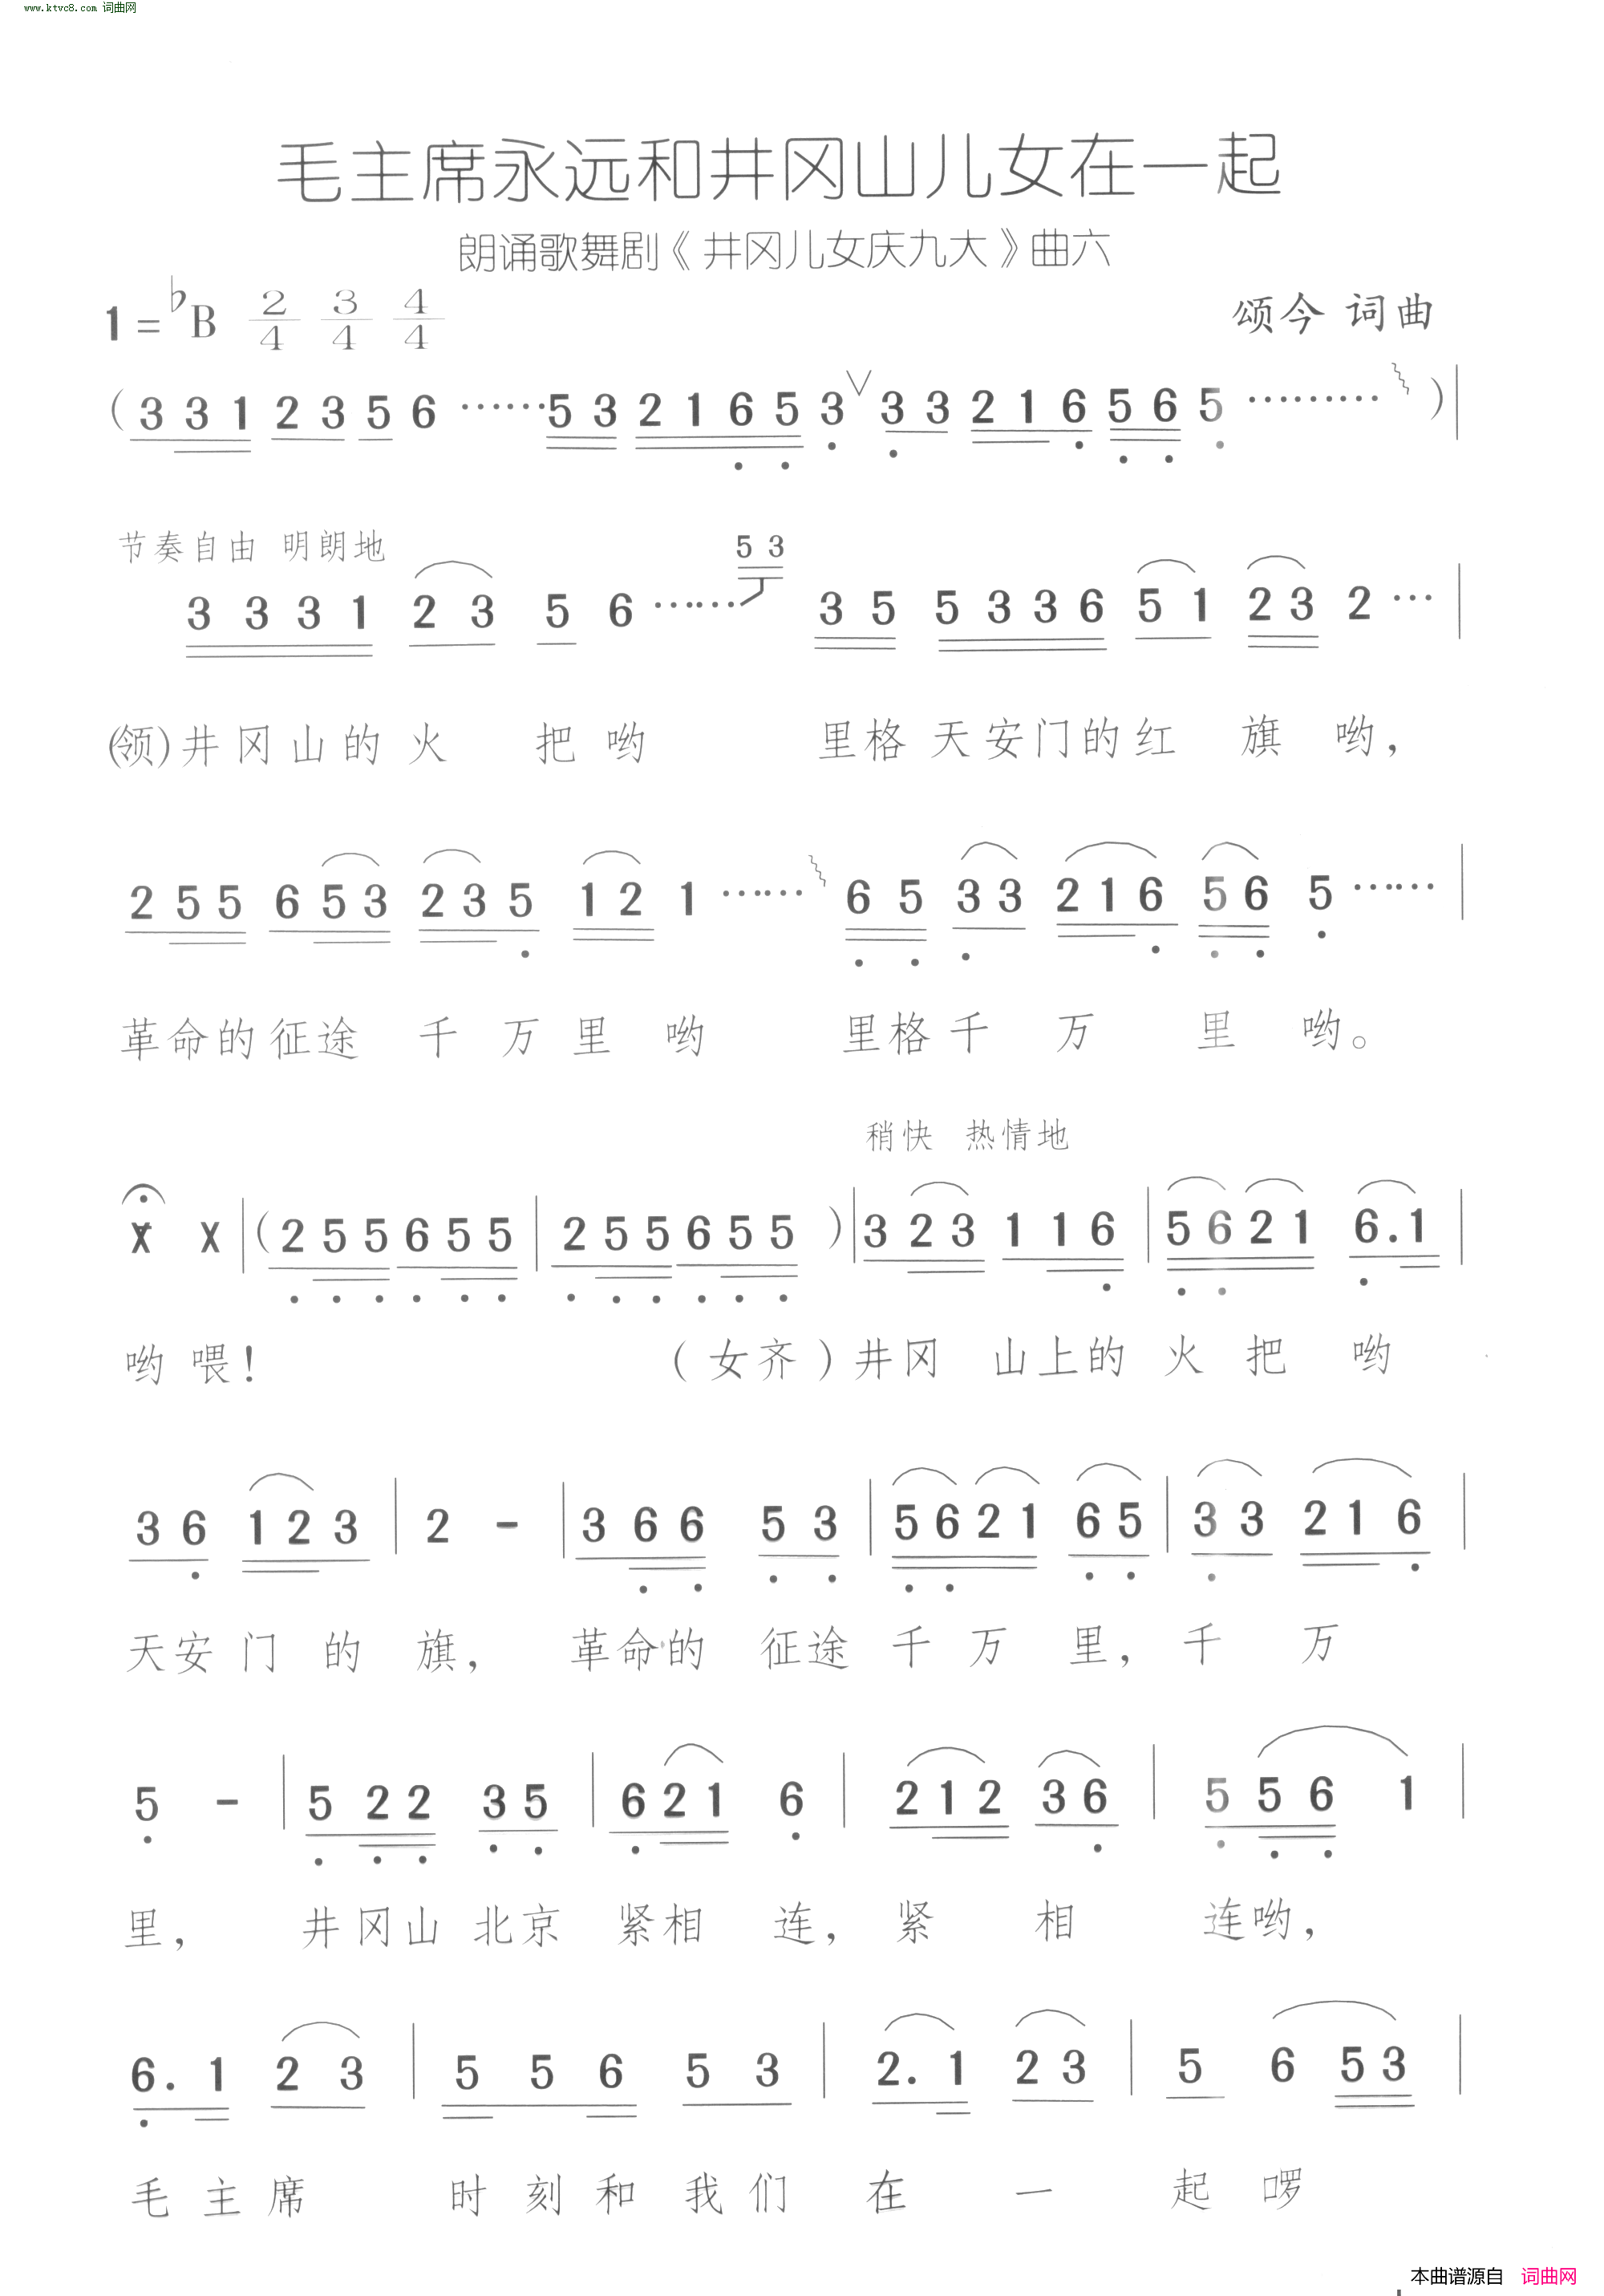 www.ktvc8.com 词曲网
毛主席永远和井冈山儿女在一起
朗诵歌舞剧《井冈儿女庆九大》曲六
1=♭B 2/4 3/4 4/4 颂今 词曲
(3 3 1 2 3 5 6 ······ 5 3 2 1 6 5 3 ∨ 3 3 2 1 6 5 6 5 ·········)|
节奏自由 明朗地
5 3
3 3 3 1 2 3 5 6 ······ 3 5 5 3 3 6 5 1 2 3 2 ··· |
(领)井冈山的火 把哟 里格天安门的红 旗 哟,
2 5 5 6 5 3 2 3 5 1 2 1 ······ 6 5 3 3 2 1 6 5 6 5 ······ |
革命的征途 千 万里 哟 里格千 万 里 哟。
稍快 热情地
X X |(2 5 5 6 5 5 | 2 5 5 6 5 5 )| 3 2 3 1 1 6 | 5 6 2 1 6. 1 |
哟 喂! (女齐)井冈 山上的 火 把 哟
3 6 1 2 3 | 2 - | 3 6 6 5 3 | 5 6 2 1 6 5 | 3 3 2 1 6 |
天安 门 的 旗, 革命的 征途 千 万 里, 千 万
5 - | 5 2 2 3 5 | 6 2 1 6 | 2 1 2 3 6 | 5 5 6 1 |
里, 井冈山 北京 紧相 连, 紧 相 连哟,
6. 1 2 3 | 5 5 6 5 3 | 2. 1 2 3 | 5 6 5 3 |
毛 主 席 时 刻 和 我 们 在 一 起 啰
本曲谱源自 词曲网